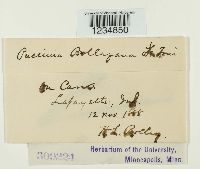 1234850
Puccinia Bolleyana
on Carex
Lafayette, Ind
12 Nov 1888
H.L. Bolley
Herbarium of the University,
Minneapolis, Minn.